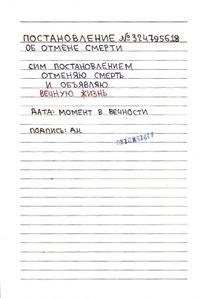 ПОСТАНОВЛЕНИЕ №324795518
ОБ ОТМЕНЕ СМЕРТИ
СИМ ПОСТАНОВЛЕНИЕМ
ОТМЕНЯЮ СМЕРТЬ
И ОБЪЯВЛЯЮ
ВЕЧНУЮ ЖИЗНЬ
ДАТА: МОМЕНТ В ВЕЧНОСТИ
ПОДПИСЬ: А.Н.